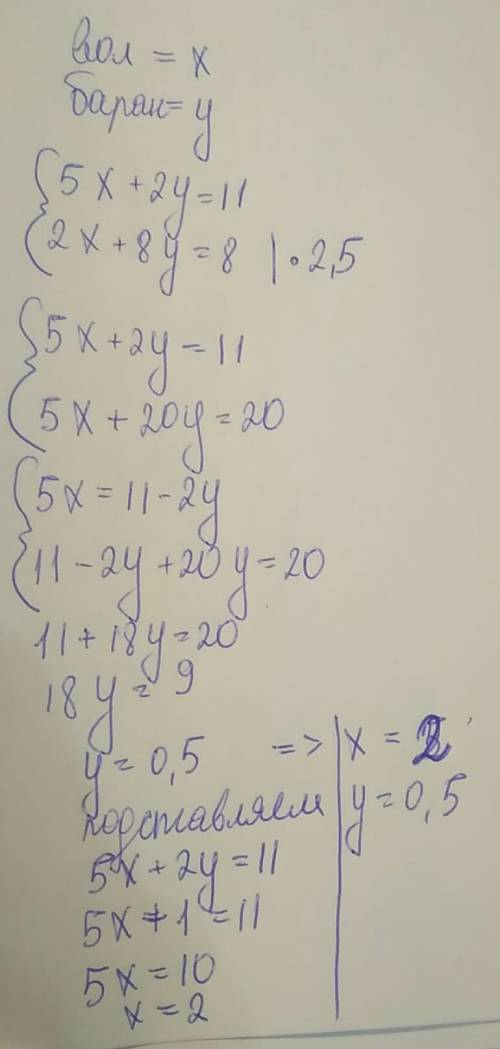 вол = x
баран = y
5x + 2y = 11
2x + 8y = 8 | • 2,5
5x + 2y = 11
5x + 20y = 20
5x = 11 - 2y
11 - 2y + 20y = 20
11 + 18y = 20
18y = 9
y = 0,5 => x = 2
подставляем y = 0,5
5x + 2y = 11
5x + 1 = 11
5x = 10
x = 2